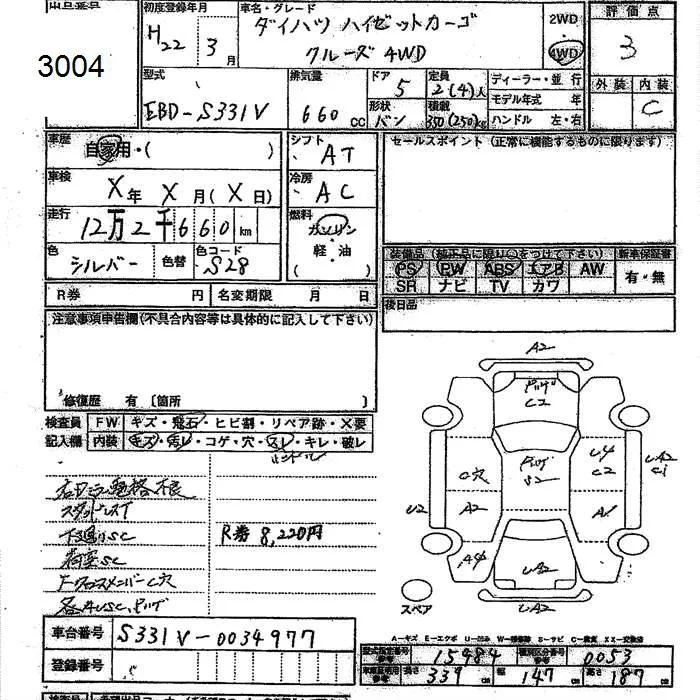 出品番号
3004
初度登録年月
H22年 3月
車名・グレード
ダイハツ ハイゼットカーゴ
クルーズ 4WD
2WD
4WD
評価点
3
外装 内装
C
型式
EBD-S331V
排気量
660 CC
ドア 5
形状 バン
定員 2(4)人
積載 350(250)kg
ディーラー・並行
モデル年式 年
ハンドル 左・右
車歴
自家用・( )
車検
X年 X月(X日)
走行
12万2千660km
色
シルバー
色替
色コード
S28
シフト
AT
冷房
AC
燃料
ガソリン
・
軽・油
( )
セールスポイント(正常に機能するものに限ります)
装備品(純正品に限り○をつけて下さい)
新車保証書
PS PW ABS エアB AW
SR ナビ TV カワ
有・無
R券 円 名変期限 月 日
後日品
注意事項申告欄(不具合内容等は具体的に記入して下さい)
修復歴 有 〔箇所 〕
検査員
記入欄
FW キズ・飛石・ヒビ割・リペア跡・X要
内装 キズ・汚レ・コゲ・穴・スレ・キレ・破レ
ハンドル
スタッドレスT
下廻りSC
荷室SC
FクロスメンバーC穴
R券 8,220円
A2
C2
S2
C穴
A2
A4
U2
U4
C2
A1
UA2
C1
UA2
UA2
スペア
A-キズ E-エクボ U-凹み W-補修跡 S-サビ C-腐食 XX-交換済
車台番号
S331V-0034977
登録番号
型式指定番号
参考
15484
類別区分番号
参考
0053
長さ 339
幅 147
高さ 187